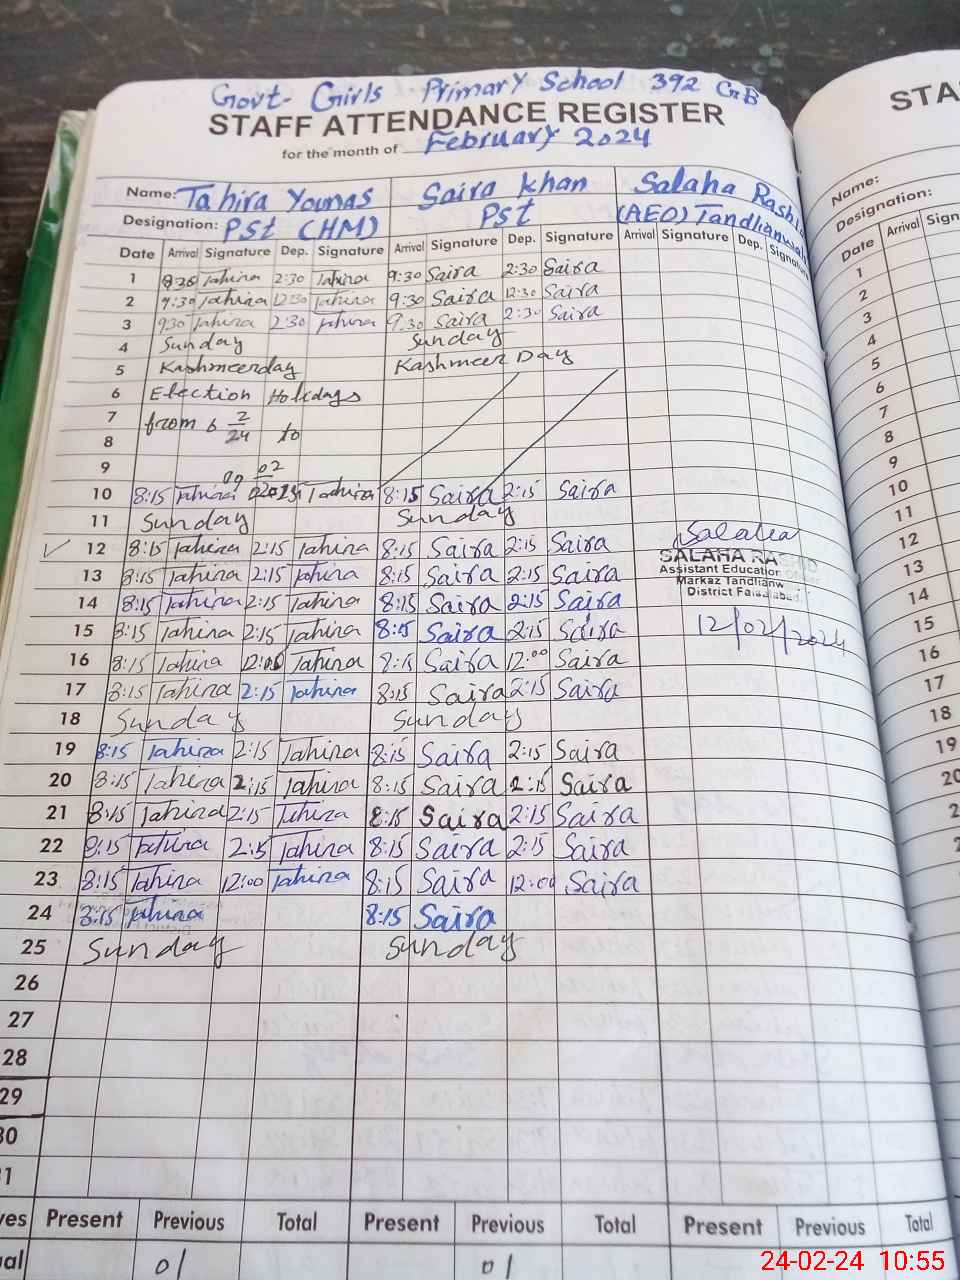 Govt- Girls Primary School 392 GB
STAFF ATTENDANCE REGISTER
STA
for the month of February 2024
Name: Tahira Younas Saira Khan Salaha Rashid
Designation: PSt (HM) PSt (AEO) Tandlianwala
Name:
Designation:
Date Arrival Signature Dep. Signature Arrival Signature Dep. Signature Arrival Signature Dep. Signature
Date Arrival Sign
1 Tahira 2:30 Tahira 9:30 Saira 2:30 Saira
2 9:30 Tahira 12:30 Tahira 9:30 Saira 12:30 Saira
3 9:30 Tahira 2:30 Tahira 9.30 Saira 2:30 Saira
4 Sunday Sunday
5 Kashmeerday Kashmeer Day
6 Election Holidays
7 from 6 2/24 to
8
9 09 02
10 8:15 Tahira Tahira 8:15 Saira 2:15 Saira
11 Sunday Sunday
12 8:15 Tahira 2:15 Tahira 8:15 Saira 2:15 Saira Salaha
SALAHA RASHID
13 8:15 Tahira 2:15 Tahira 8:15 Saira 2:15 Saira Assistant Education officer
Markaz Tandlianw
14 8:15 Tahira 2:15 Tahira 8:15 Saira 2:15 Saira District Faisalabad
15 8:15 Tahira 2:15 Tahira 8:15 Saira 2:15 Saira 12/02/2024
16 8:15 Tahira 12:00 Tahira 8:15 Saira 12:00 Saira
17 8:15 Tahira 2:15 Tahira 8:15 Saira 2:15 Saira
18 Sunday Sunday
19 8:15 Tahira 2:15 Tahira 8:15 Saira 2:15 Saira
20 8:15 Tahira 2:15 Tahira 8:15 Saira 2:15 Saira
21 8:15 Tahira 2:15 Tahira 8:15 Saira 2:15 Saira
22 8:15 Tahira 2:15 Tahira 8:15 Saira 2:15 Saira
23 8:15 Tahira 12:00 Tahira 8:15 Saira 12:00 Saira
24 8:15 Tahira 8:15 Saira
25 Sunday Sunday
26
27
28
29
30
31
1
2
3
4
5
6
7
8
9
10
11
12
13
14
15
16
17
18
19
20
2
ves Present Previous Total Present Previous Total Present Previous Total
ual 01 01
24-02-24 10:55